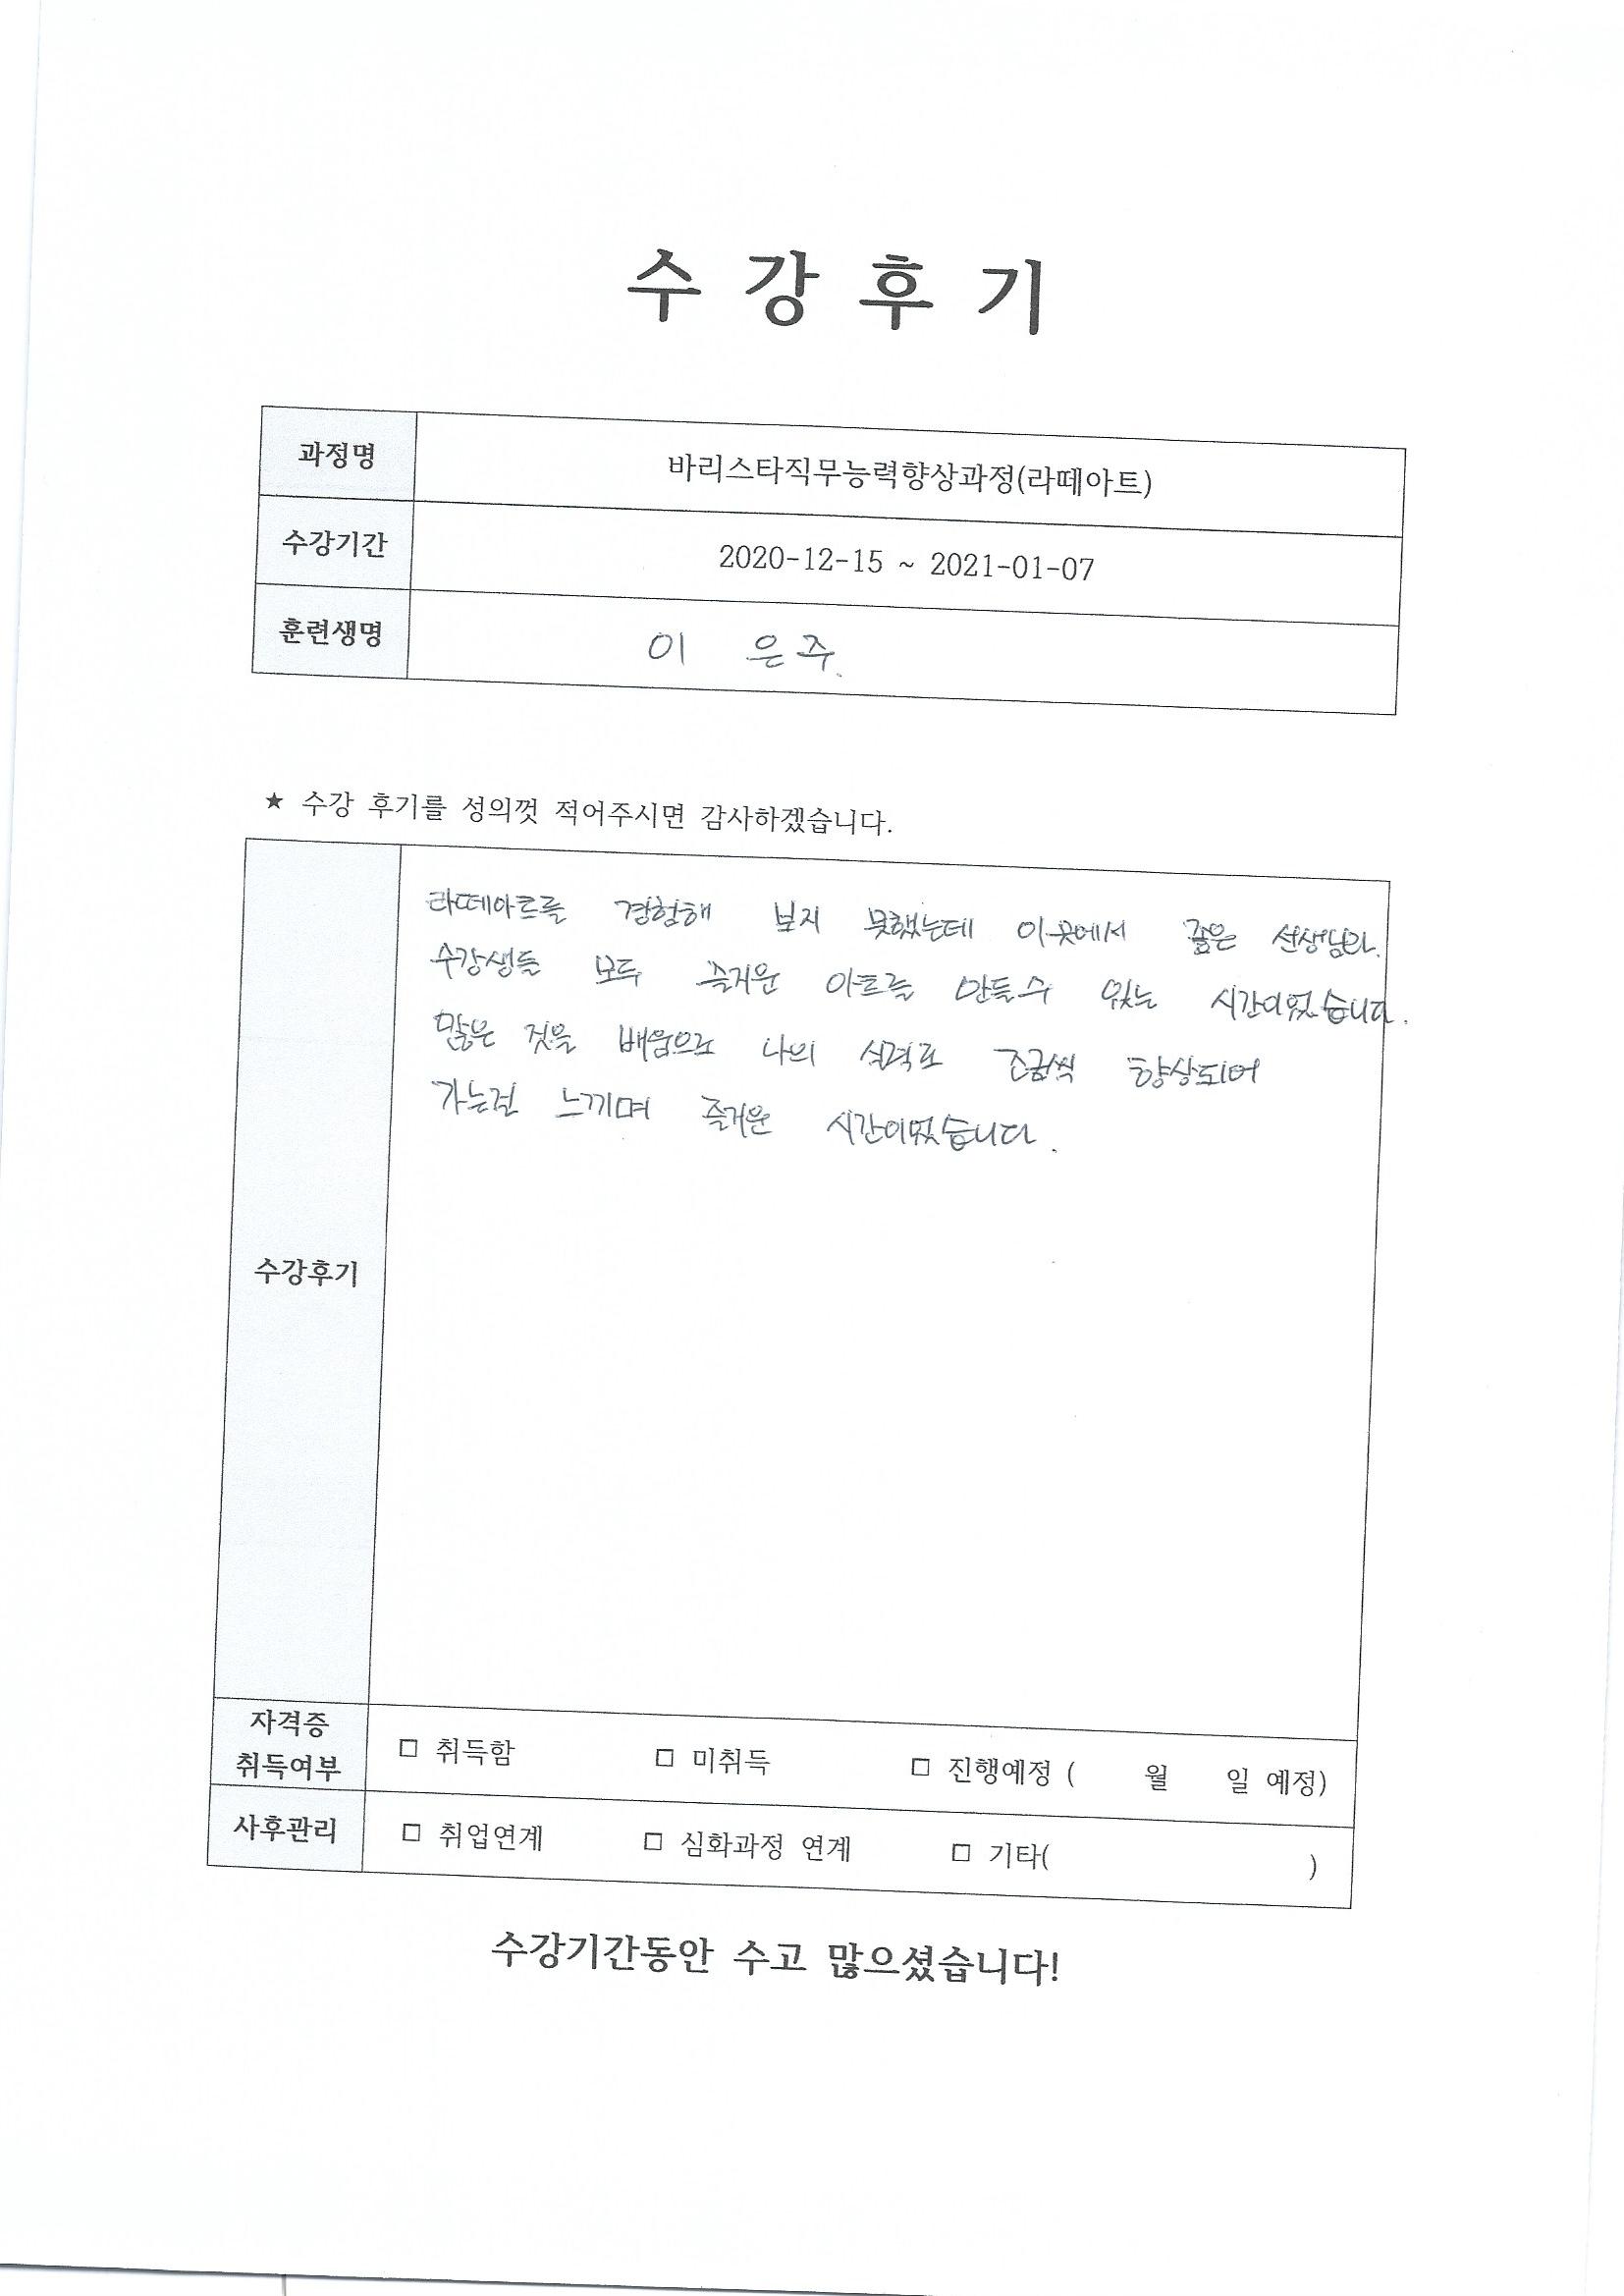 수 강 후 기
과정명 바리스타직무능력향상과정(라떼아트)
수강기간 2020-12-15 ~ 2021-01-07
훈련생명 이 은주.
★ 수강 후기를 성의껏 적어주시면 감사하겠습니다.
라떼아트를 경험해 보지 못했는데 이곳에서 좋은 선생님과.
수강생들 모두 즐거운 아트를 만들수 있는 시간이었습니다.
많은 것을 배움으로 나의 실력도 조금씩 향상되어
가는걸 느끼며 즐거운 시간이었습니다.
수강후기
자격증
취득여부 □ 취득함 □ 미취득 □ 진행예정 ( 월 일 예정)
사후관리 □ 취업연계 □ 심화과정 연계 □ 기타( )
수강기간동안 수고 많으셨습니다!